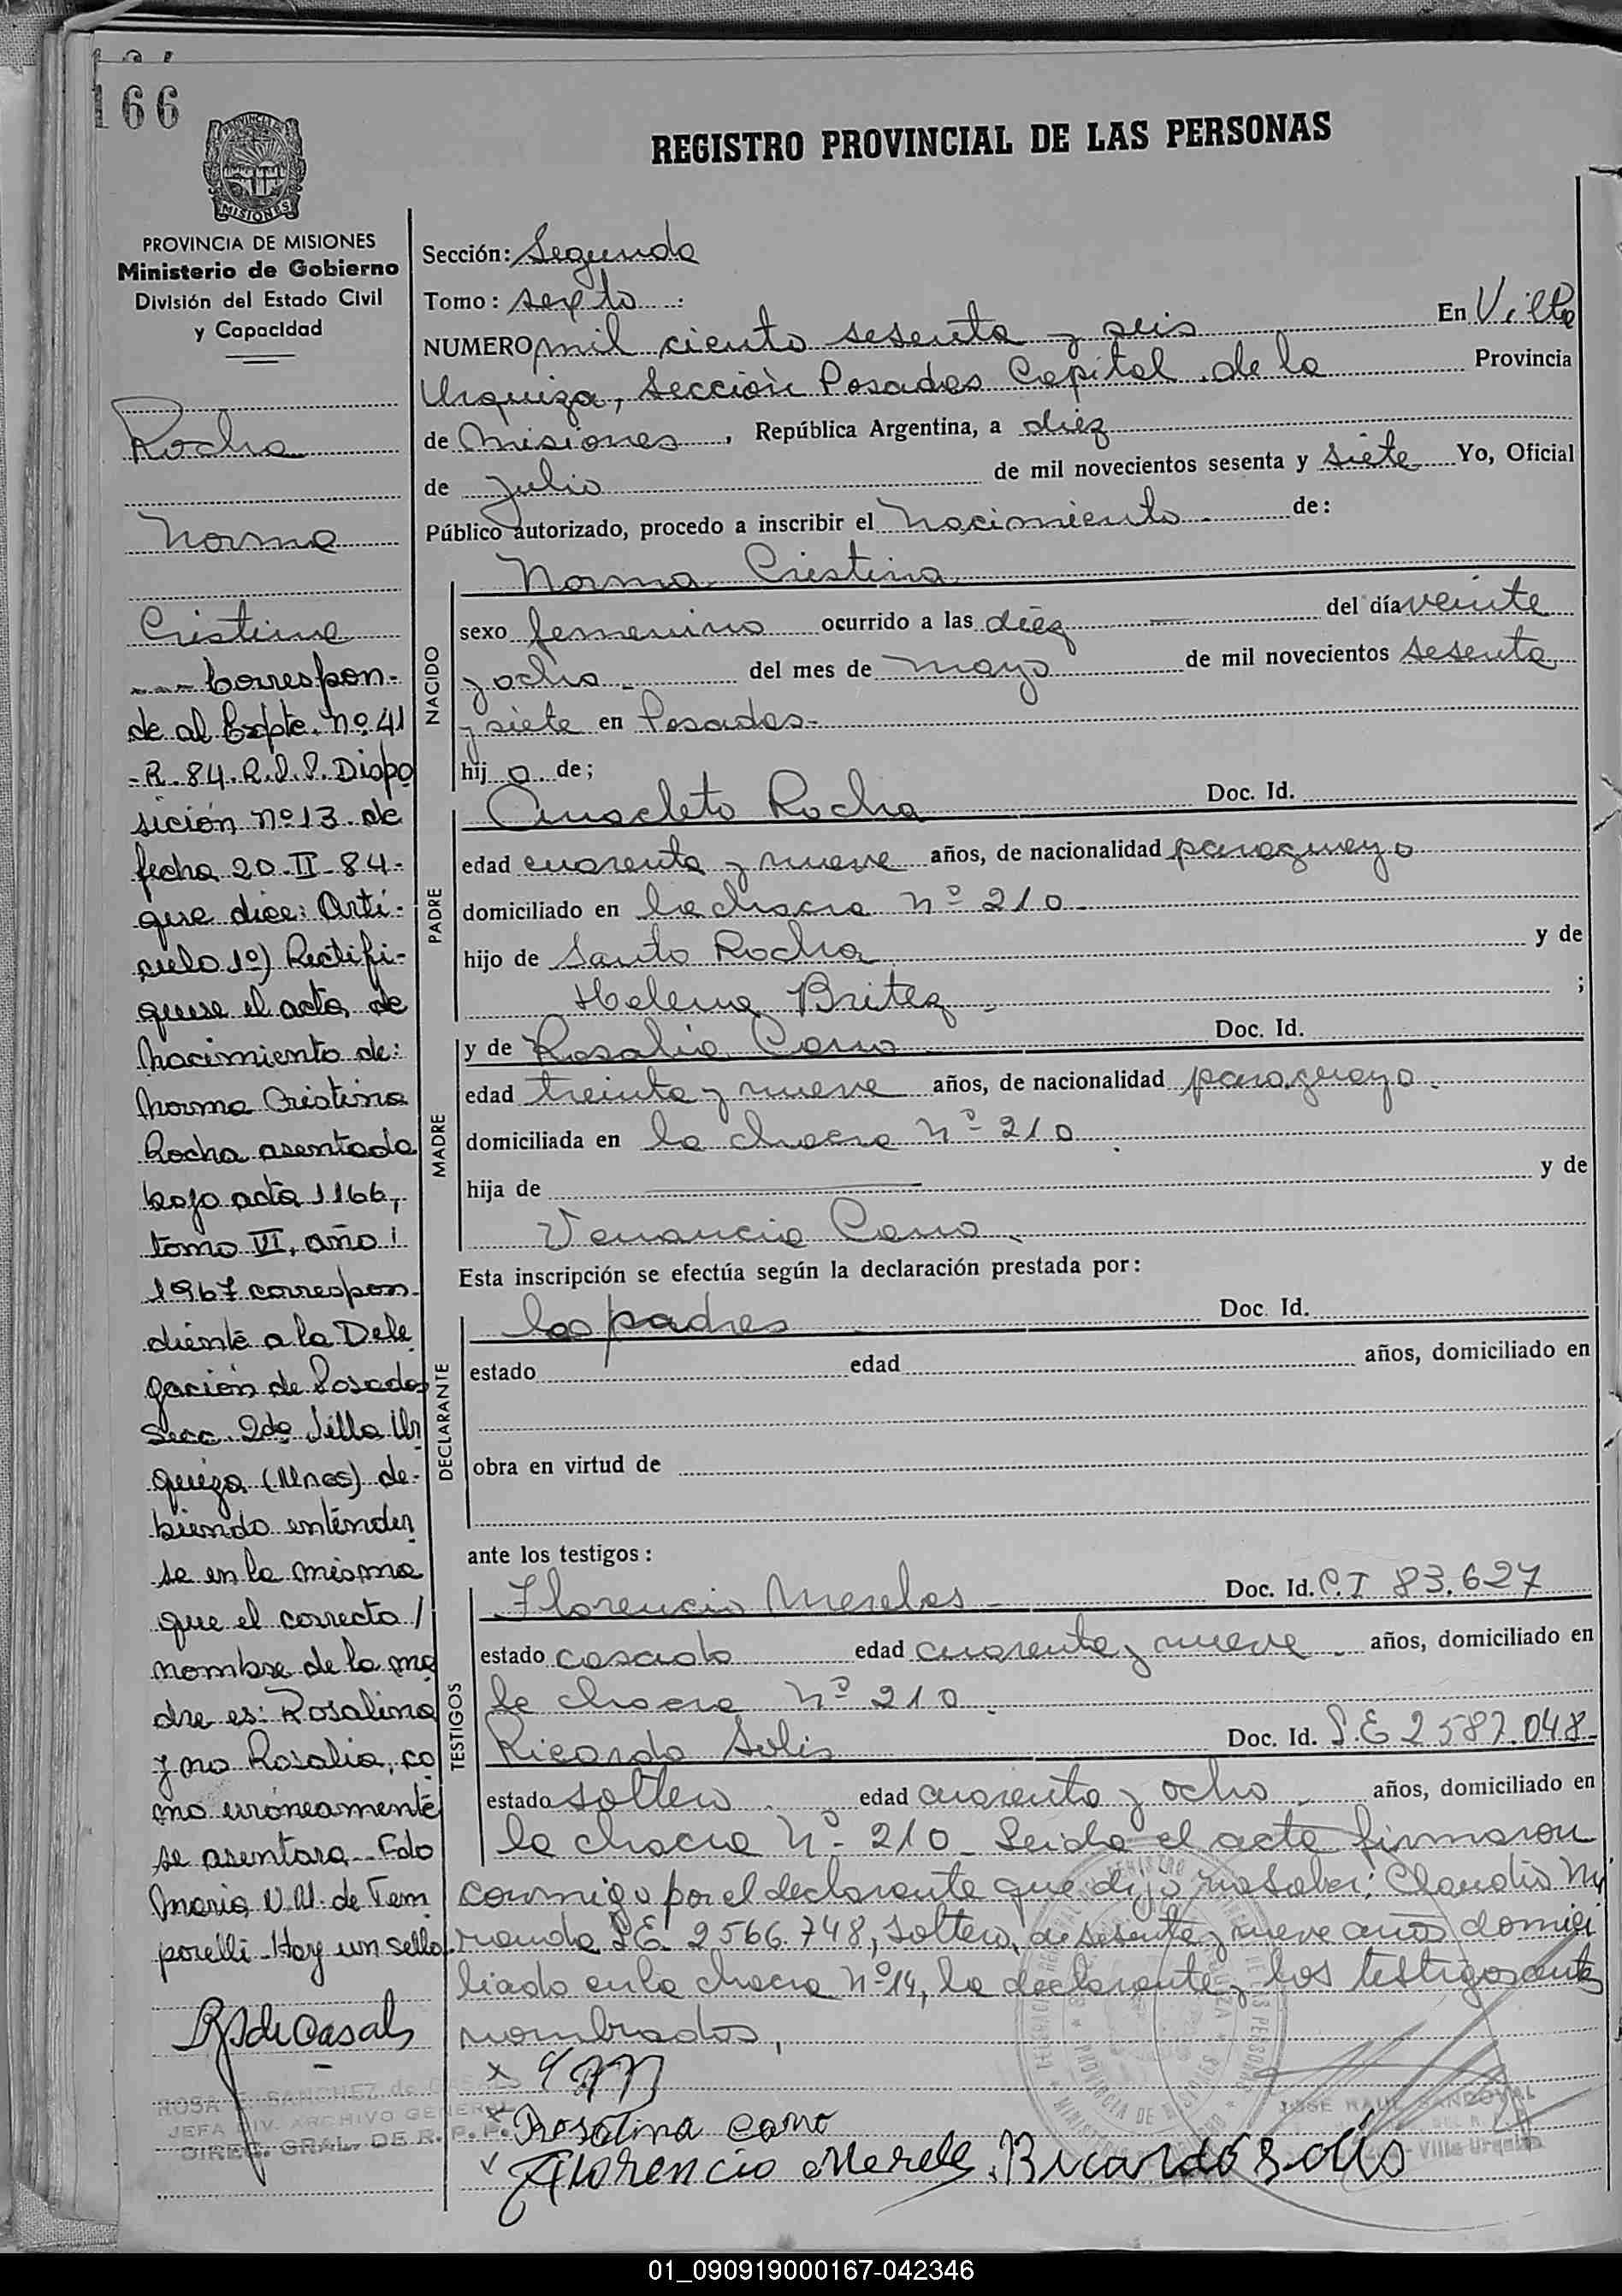 166
REGISTRO PROVINCIAL DE LAS PERSONAS
PROVINCIA DE MISIONES
Ministerio de Gobierno
División del Estado Civil
y Capacidad
Rocha
Norma
Cristina
--- Correspon-
de al Expte. Nº 41
- R. 84. R.P.P. Dispo
sición nº 13 de
fecha 20-II-84-
que dice: Artí-
culo 1º) Rectifi-
quese el acta de
Nacimiento de:
Norma Cristina
Rocha asentada
bajo acta 1166,
tomo VI, año
1967 correspon-
diente a la Dele
gación de Posadas
Secc. 2da Villa Ur
quiza (Mnes) de-
biendo entender
se en la misma
que el correcto /
nombre de la ma
dre es: Rosalina
y no Rosalia, co
mo erróneamente
se asentara. Fdo
Maria V. M. de Tem
porelli - Hay un sello
ROSA E. SANCHEZ de CASALS
JEFA DIV. ARCHIVO GENERAL
DIREC. GRAL. DE R. P. P.
Sección: Segunda
Tomo: sexto
NUMERO mil ciento sesenta y seis En Villa
Urquiza, Sección Posadas Capital de la Provincia
de Misiones, República Argentina, a diez
de Julio de mil novecientos sesenta y siete Yo, Oficial
Público autorizado, procedo a inscribir el Nacimiento de:
NACIDO
Norma Cristina
sexo femenino ocurrido a las diez del día veinte
y ocho del mes de mayo de mil novecientos sesenta
y siete en Posadas-
hij a de;
PADRE
Anacleto Rocha Doc. Id.
edad cuarenta y nueve años, de nacionalidad paraguayo
domiciliado en la chacra Nº 210
hijo de Santo Rocha y de
Helena Britez ;
MADRE
y de Rosalia Cano Doc. Id.
edad treinta y nueve años, de nacionalidad paraguaya
domiciliada en la chacra Nº 210
hija de y de
Venancia Cano
Esta inscripción se efectúa según la declaración prestada por:
DECLARANTE
los padres Doc. Id.
estado edad años, domiciliado en
obra en virtud de
ante los testigos:
TESTIGOS
Florencio Mereles Doc. Id. C.I 83.627
estado casado edad cuarenta y nueve años, domiciliado en
la chacra Nº 210
Ricardo Solis Doc. Id. L.E 2587.048
estado soltero edad cuarenta y ocho años, domiciliado en
la chacra Nº 210 Leida el acta firmaron
conmigo por el declarante que dijo no saber: Claudio Mi
randa L.E. 2566.748, soltero, de sesenta y nueve años domici
liado en la chacra Nº 14, la declarante y los testigos antes
nombrados,
Rosalina cano
Florencio Mereles Ricardo Solis
JOSE RAUL SANDOVAL
Villa Urquiza
01_090919000167-042346